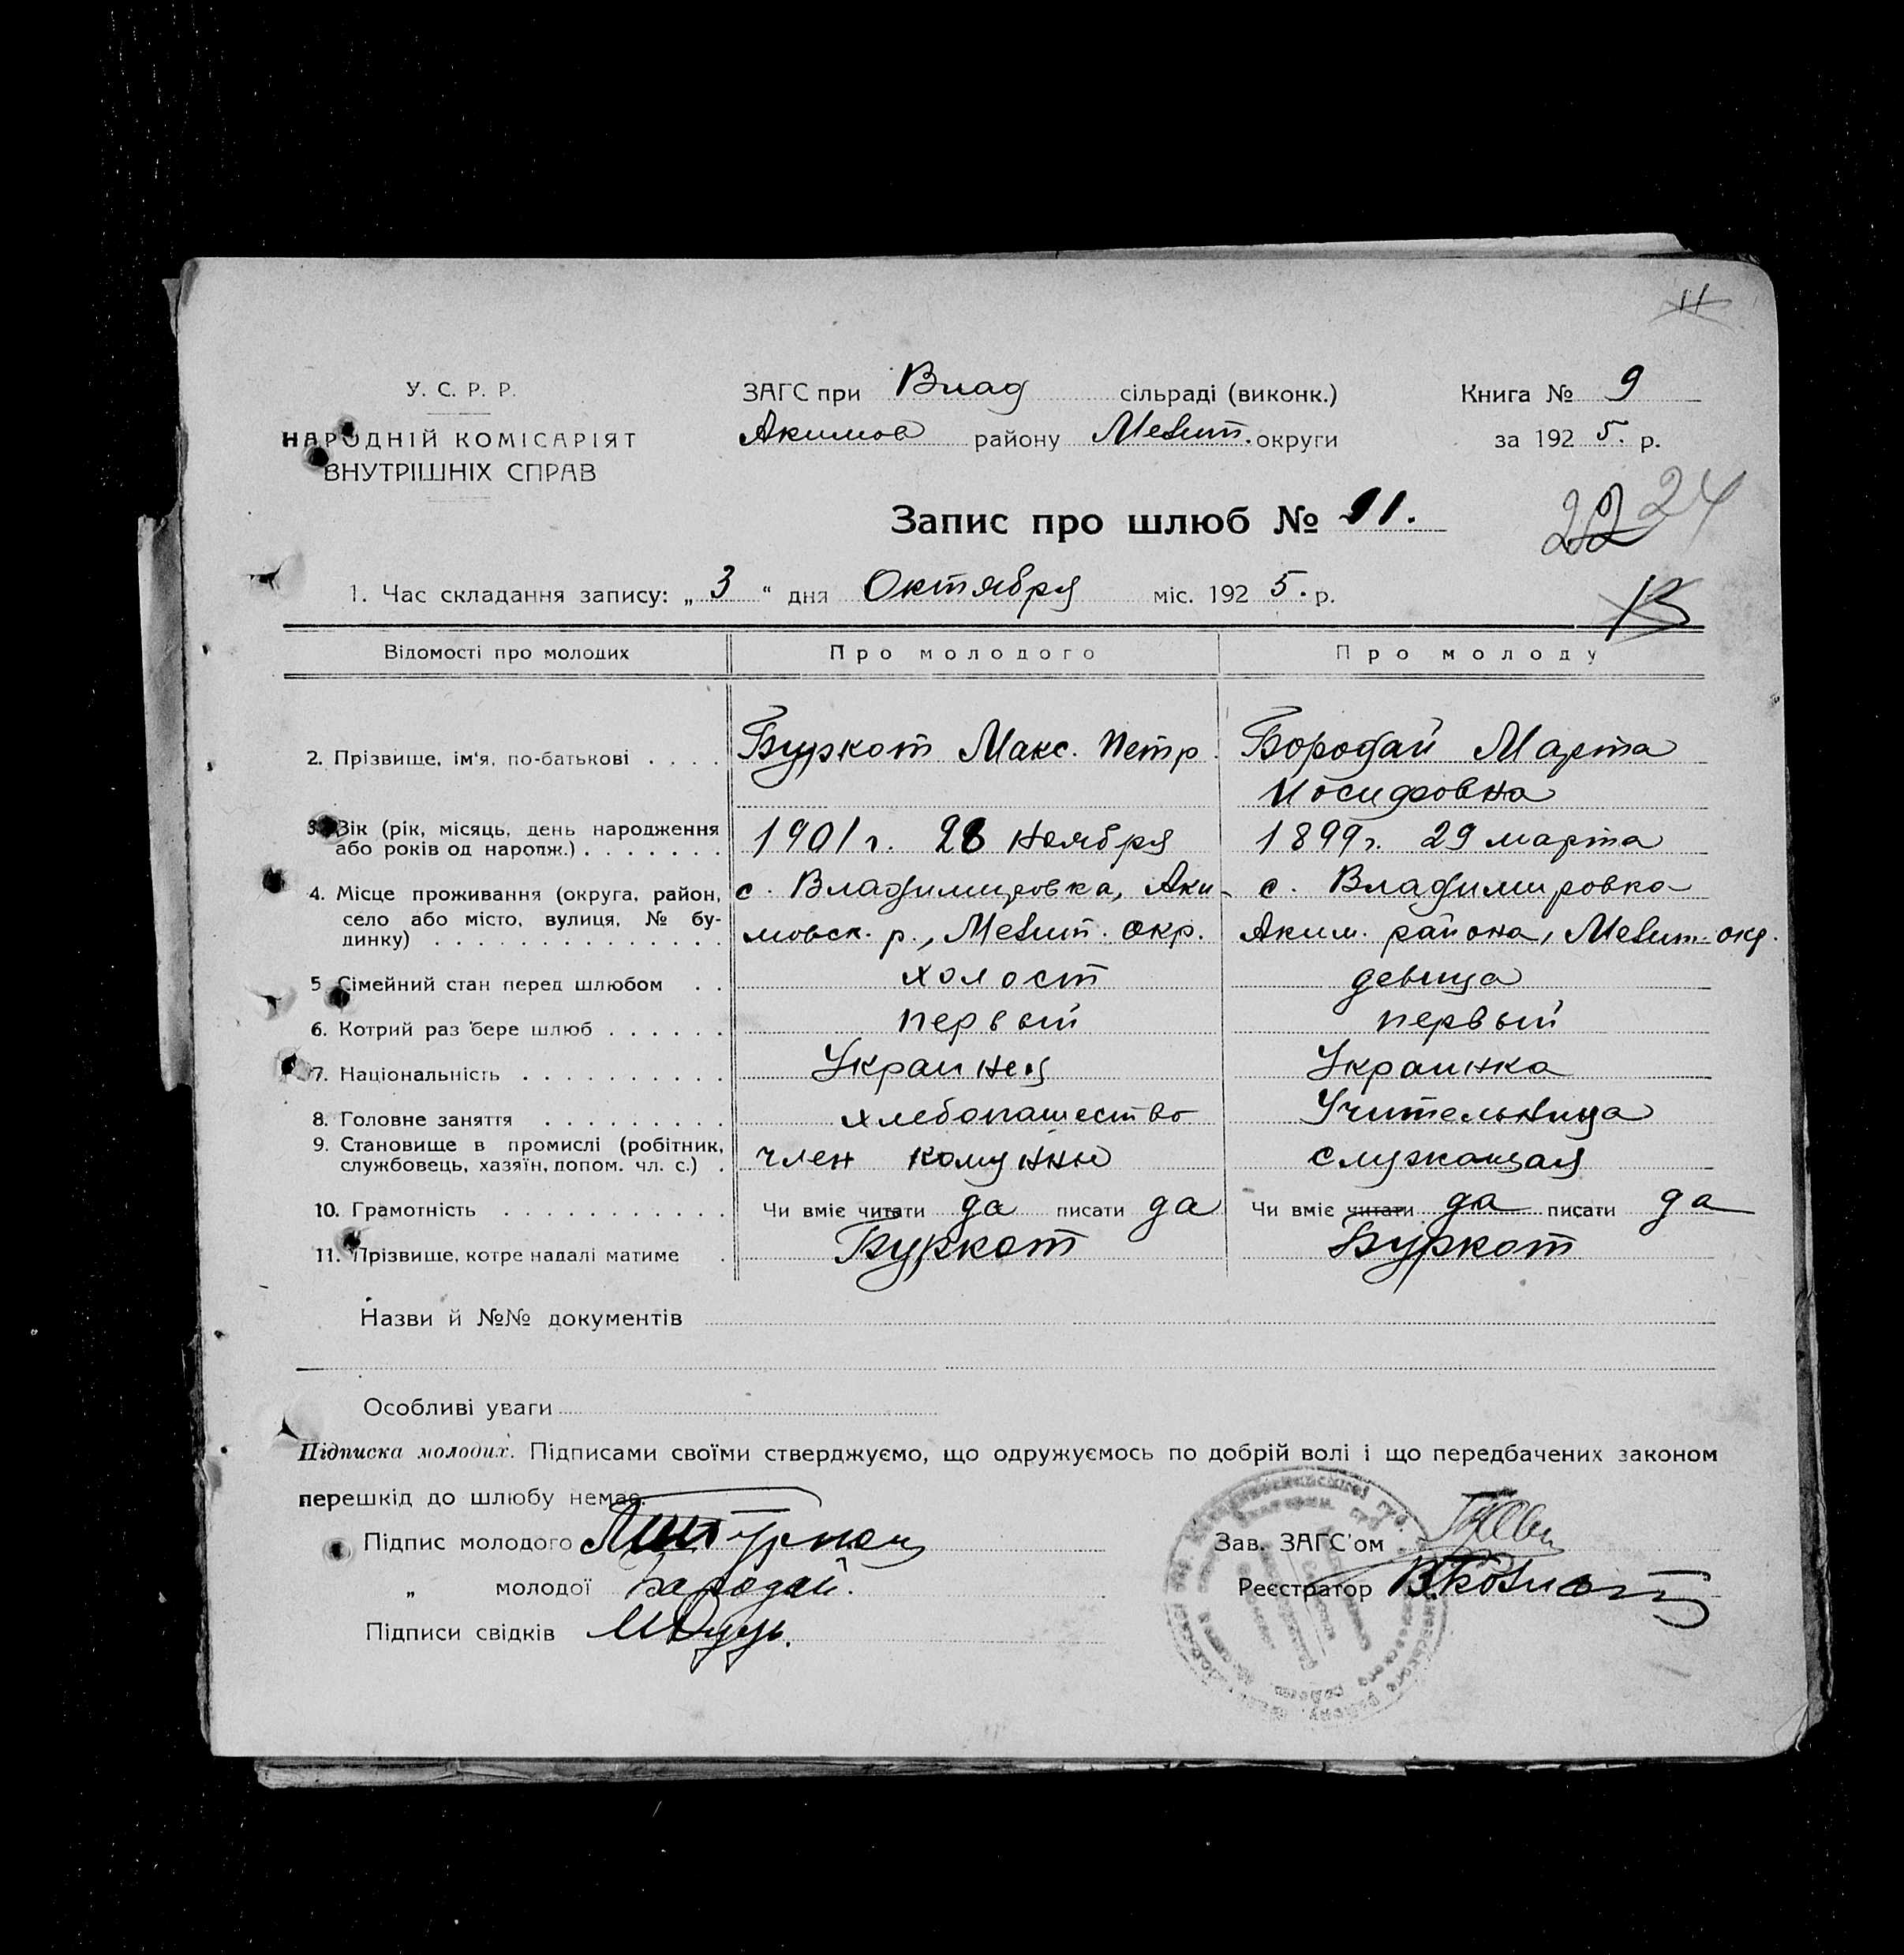 11
У. С. Р. Р.
НАРОДНІЙ КОМІСАРІЯТ
ВНУТРІШНІХ СПРАВ
ЗАГС при Влад сільраді (виконк.)
Акимов району Мелит. округи
Книга № 9
за 1925. р.
Запис про шлюб № 11.
22 24
13
1. Час складання запису: „3“ дня Октября міс. 1925. р.
Відомості про молодих Про молодого Про молоду
2. Прізвище, ім'я, по-батькові . . . . Буркот Макс. Петр. Бородай Марта
Иосифовна
3. Вік (рік, місяць, день народження
або років од народж.) . . . . . . . 1901 г. 28 ноября 1899 г. 29 марта
4. Місце проживання (округа, район, с. Владимировка, Аки- с. Владимировка
село або місто, вулиця, № бу-
динку) . . . . . . . . . . . . . . мовск. р., Мелит. окр. Аким. района, Мелит. окр.
5. Сімейний стан перед шлюбом . . холост девица
6. Котрий раз бере шлюб . . . . . . первый первый
7. Національність . . . . . . . . . . Украинец Украинка
8. Головне заняття . . . . . . . . . хлебопашество Учительница
9. Становище в промислі (робітник,
службовець, хазяїн, допом. чл. с.) . член комунны служащая
10. Грамотність . . . . . . . . . . . Чи вміє читати да писати да Чи вміє читати да писати да
11. Прізвище, котре надалі матиме . Буркот Буркот
Назви й №№ документів
Особливі уваги
Підписка молодих. Підписами своїми стверджуємо, що одружуємось по добрій волі і що передбачених законом
перешкід до шлюбу немає.
Підпис молодого
Зав. ЗАГС'ом
„ молодої Бародай.
Реєстратор
Підписи свідків